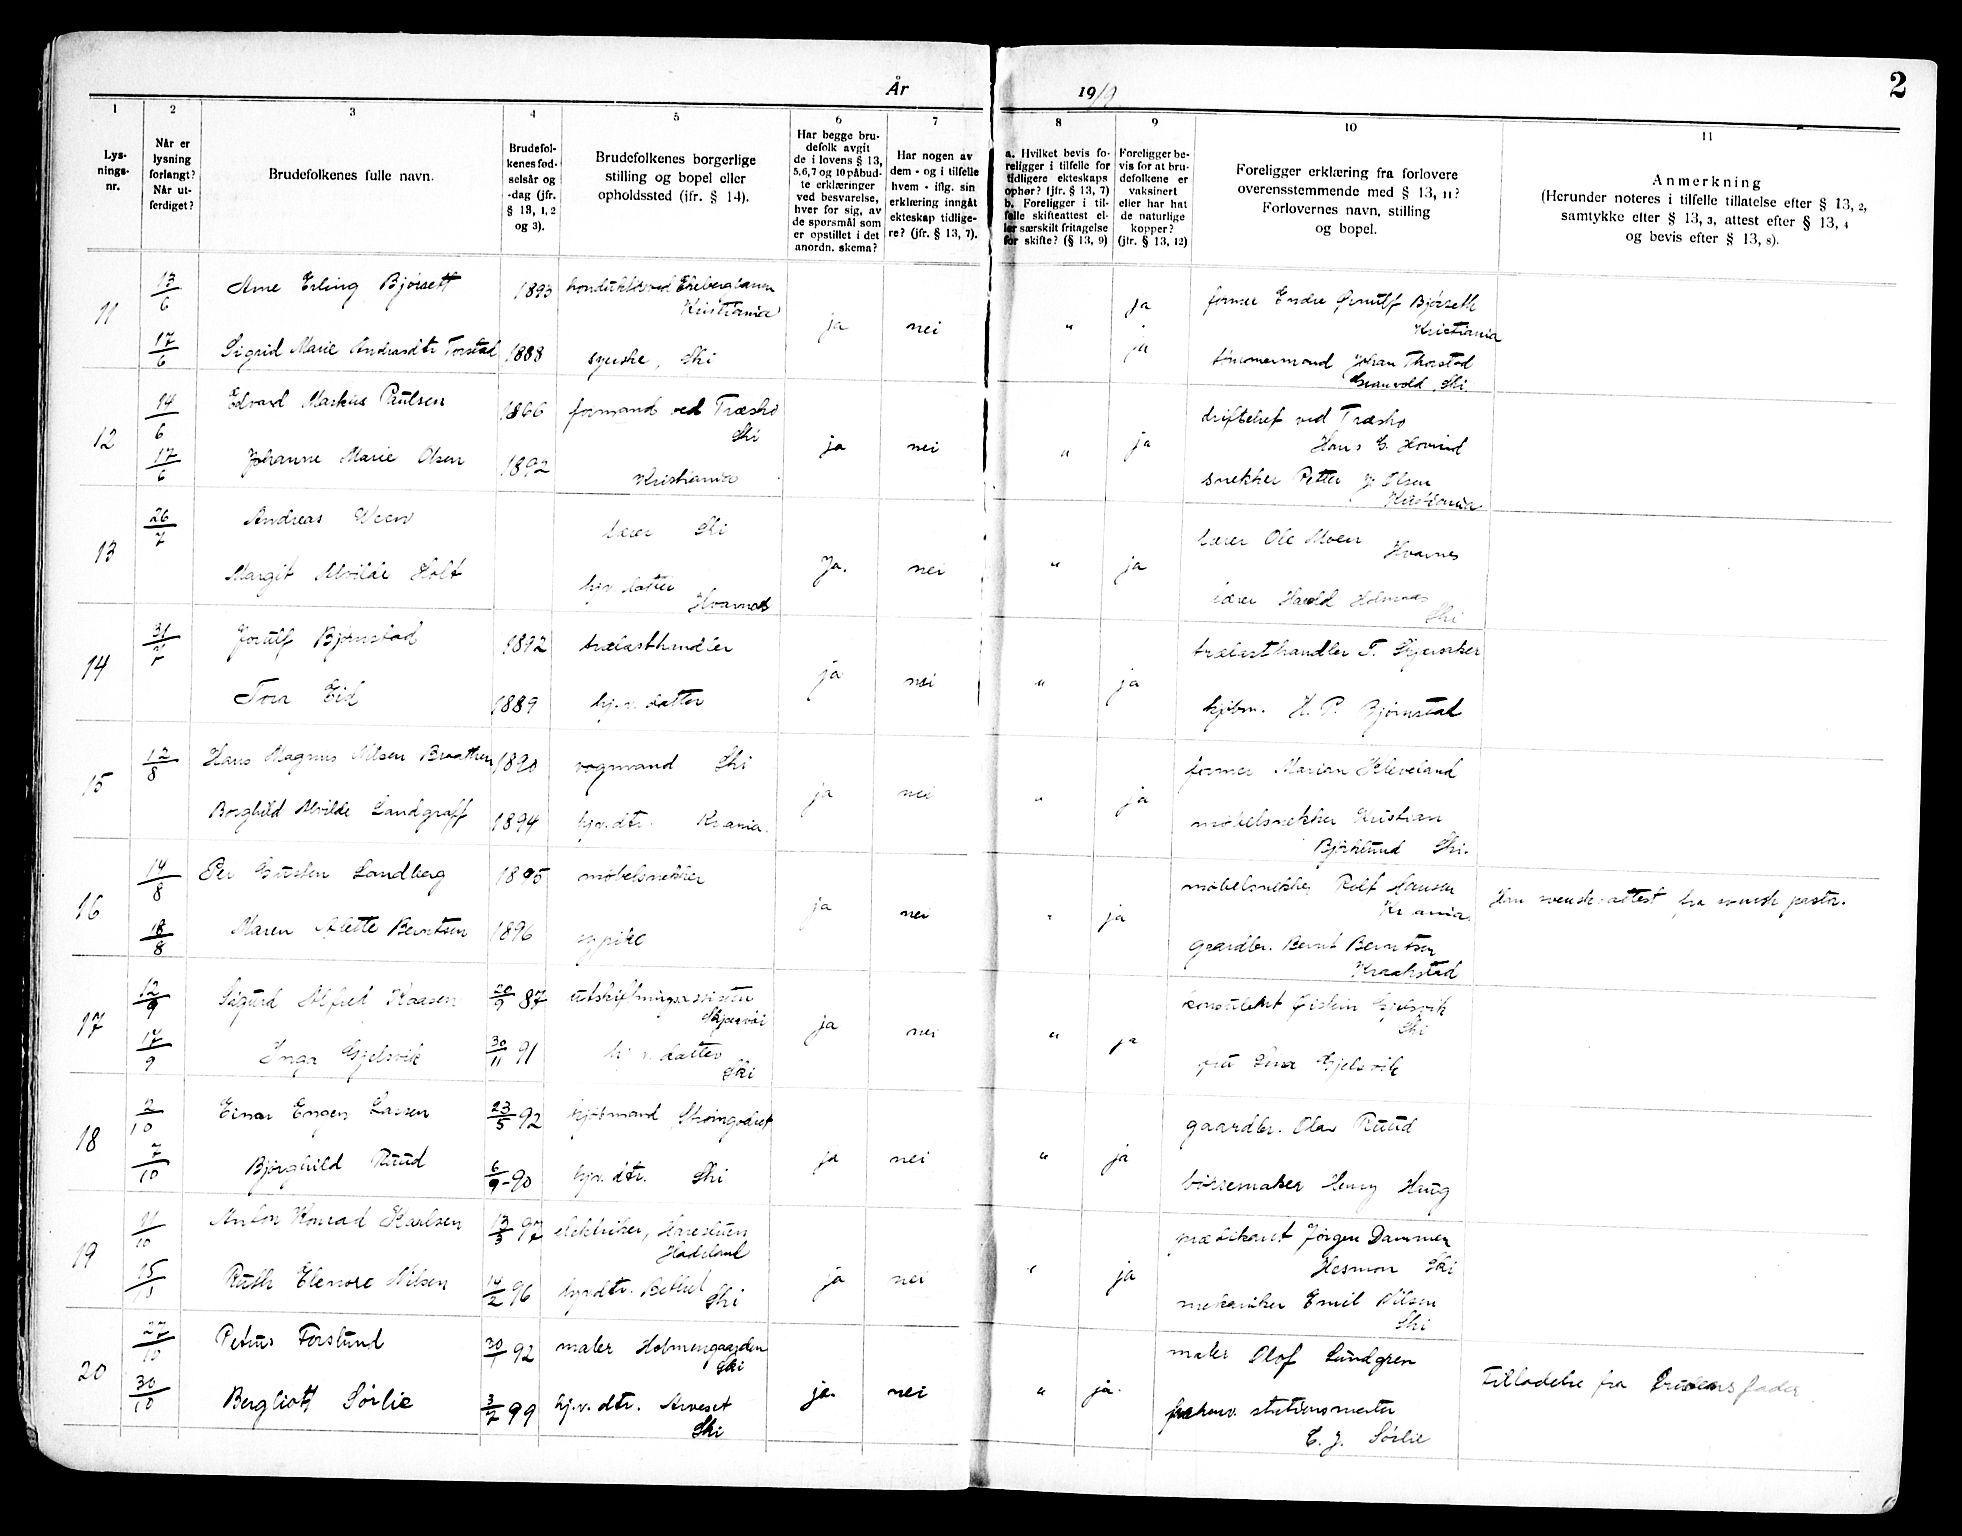 2
År 1919
1 2 3 4 5 6 7 8 9 10 11
Lysningsnr.
Når er lysning forlangt? Når utferdiget?
Brudefolkenes fulle navn.
Brudefolkenes fødselsår og -dag (jfr. § 13, 1, 2 og 3).
Brudefolkenes borgerlige stilling og bopel eller opholdssted (jfr. § 14).
Har begge brudefolk avgit de i lovens § 13, 5,6,7 og 10 påbudte erklæringer ved besvarelse, hver for sig, av de spørsmål som er opstillet i det anordn. skema?
Har nogen av dem - og i tilfelle hvem - iflg. sin erklæring inngåt ekteskap tidligere? (jfr. § 13, 7).
a. Hvilket bevis foreligger i tilfelle for tidligere ekteskaps ophør? (jfr. § 13, 7)
b. Foreligger i tilfelle skifteattest eller særskilt fritagelse for skifte? (§ 13, 9)
Foreligger bevis for at brudefolkene er vaksinert eller har hat de naturlige kopper? (jfr. § 13, 12)
Foreligger erklæring fra forlovere overensstemmende med § 13, 11? Forlovernes navn, stilling og bopel.
Anmerkning
(Herunder noteres i tilfelle tillatelse efter § 13, 2, samtykke efter § 13, 3, attest efter § 13, 4 og bevis efter § 13, 8).
11 13/6 Arne Erling Bjørsett 1893 Kristiania ja nei " ja former Endre Bjørseth
Kristiania
17/6 Sigrid Marie Andreasdtr Torstad 1888 syerske, Ski ja tømmermand Johan Thorstad
Ski
12 14/6 Edvard Markus Paulsen 1866 formand ved Træsko
Ski ja nei " ja driftschef ved Træsko
Hans E. Hovind
17/6 Johanne Marie Olsen 1892 Kristiania snekker Petter J. Olsen
Kristiania
13 26/7 Andreas Ween lærer Ski Ja. nei " ja lærer Ole Moen Hvarnes
Margit Alvilde Holt hjv. datter Hvarnes lærer Harald Holmnes
Ski
14 31/7 Jorulf Bjørnstad 1892 trælasthandler ja nei " ja trælasthandler T. Skjersaker
Tora Eid 1889 hj.v. datter kjøbm. H. P. Bjørnstad
15 12/8 Hans Magnus Nilsen Braathen 1890 vognmand Ski ja nei " ja former Marian Kleveland
Borghild Alvilde Landgraff 1894 hjv.dtr. Krania. møbelsnekker Kristian
Bjørklund Ski.
16 14/8 Per Landberg 1895 møbelsnekker ja nei " ja møbelsnekker Rolf Hansen
Krania. Han svensk: attest fra svensk pastor.
18/8 Maren Alette Berntsen 1896 sypike gaardbr. Bernt Berntsen
Kraakstad
17 12/9 Sigurd Alfred Kaasen 20/9 87 utskiftningsassistent
Skjervøi ja nei " ja konsulent Øistein Gjelsvik
Ski
17/9 Inga Gjelsvik 30/11 91 hj.v. datter
Ski fru Lina Gjelsvik
18 2/10 Einar Engen Larsen 23/5 92 kjøbmand Skoingodset ja nei " ja gaardbr. Olav Ruud
7/10 Bjørghild Ruud 6/9 90 hjv. dtr. Ski børsemaker Henry Haug
19 11/10 Anton Konrad Karlsen 13/3 97 elektriker, Harestuen
Hadeland ja nei " ja prædikant Jørgen Dammen
Ski
15/10 Ruth Elenore Nilsen 14/2 96 hjvdtr. Bethel
Ski mekaniker Emil Nilsen
Ski
20 27/10 Petrus Forslund 30/1 92 maler Holmengaarden
Ski ja. nei " ja. maler Olof Lundgren
Tilladelse fra Brudens fader
30/10 Bergliott Sørlie 3/7 99 hj.v. dtr. Arveset
Ski stationsmester
E. J. Sørlie